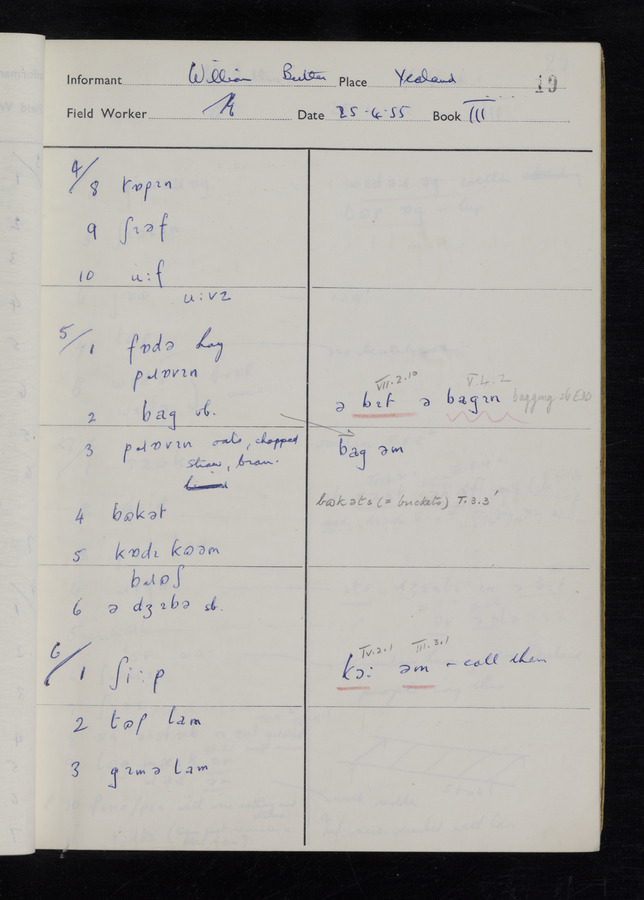 Informant William Butler Place Yealand 19
Field Worker Date 25-4-55 Book III
4/8 tɒpɪn
9 ʃɪəf
10 u:f
u:vz
5/1 fɒdə hay
pɹɒvɪn
2 bag vb.
ə bɪt ə bagɪn bagging sb EDD
VII.2.10 V.4.2
3 pɹɒvɪn oats, chopped
straw, bran.
bag əm
4 bɷkət
bɷkəts (= buckets) V.3.3'
5 kɒdɪ kɷəm
bɹɷʃ
6 ə dʒɪbə sb.
6/1 ʃi:p
IV.2.1 III.3.1
kɔ: əm - call them
2 tɷp lam
3 gɪmə lam